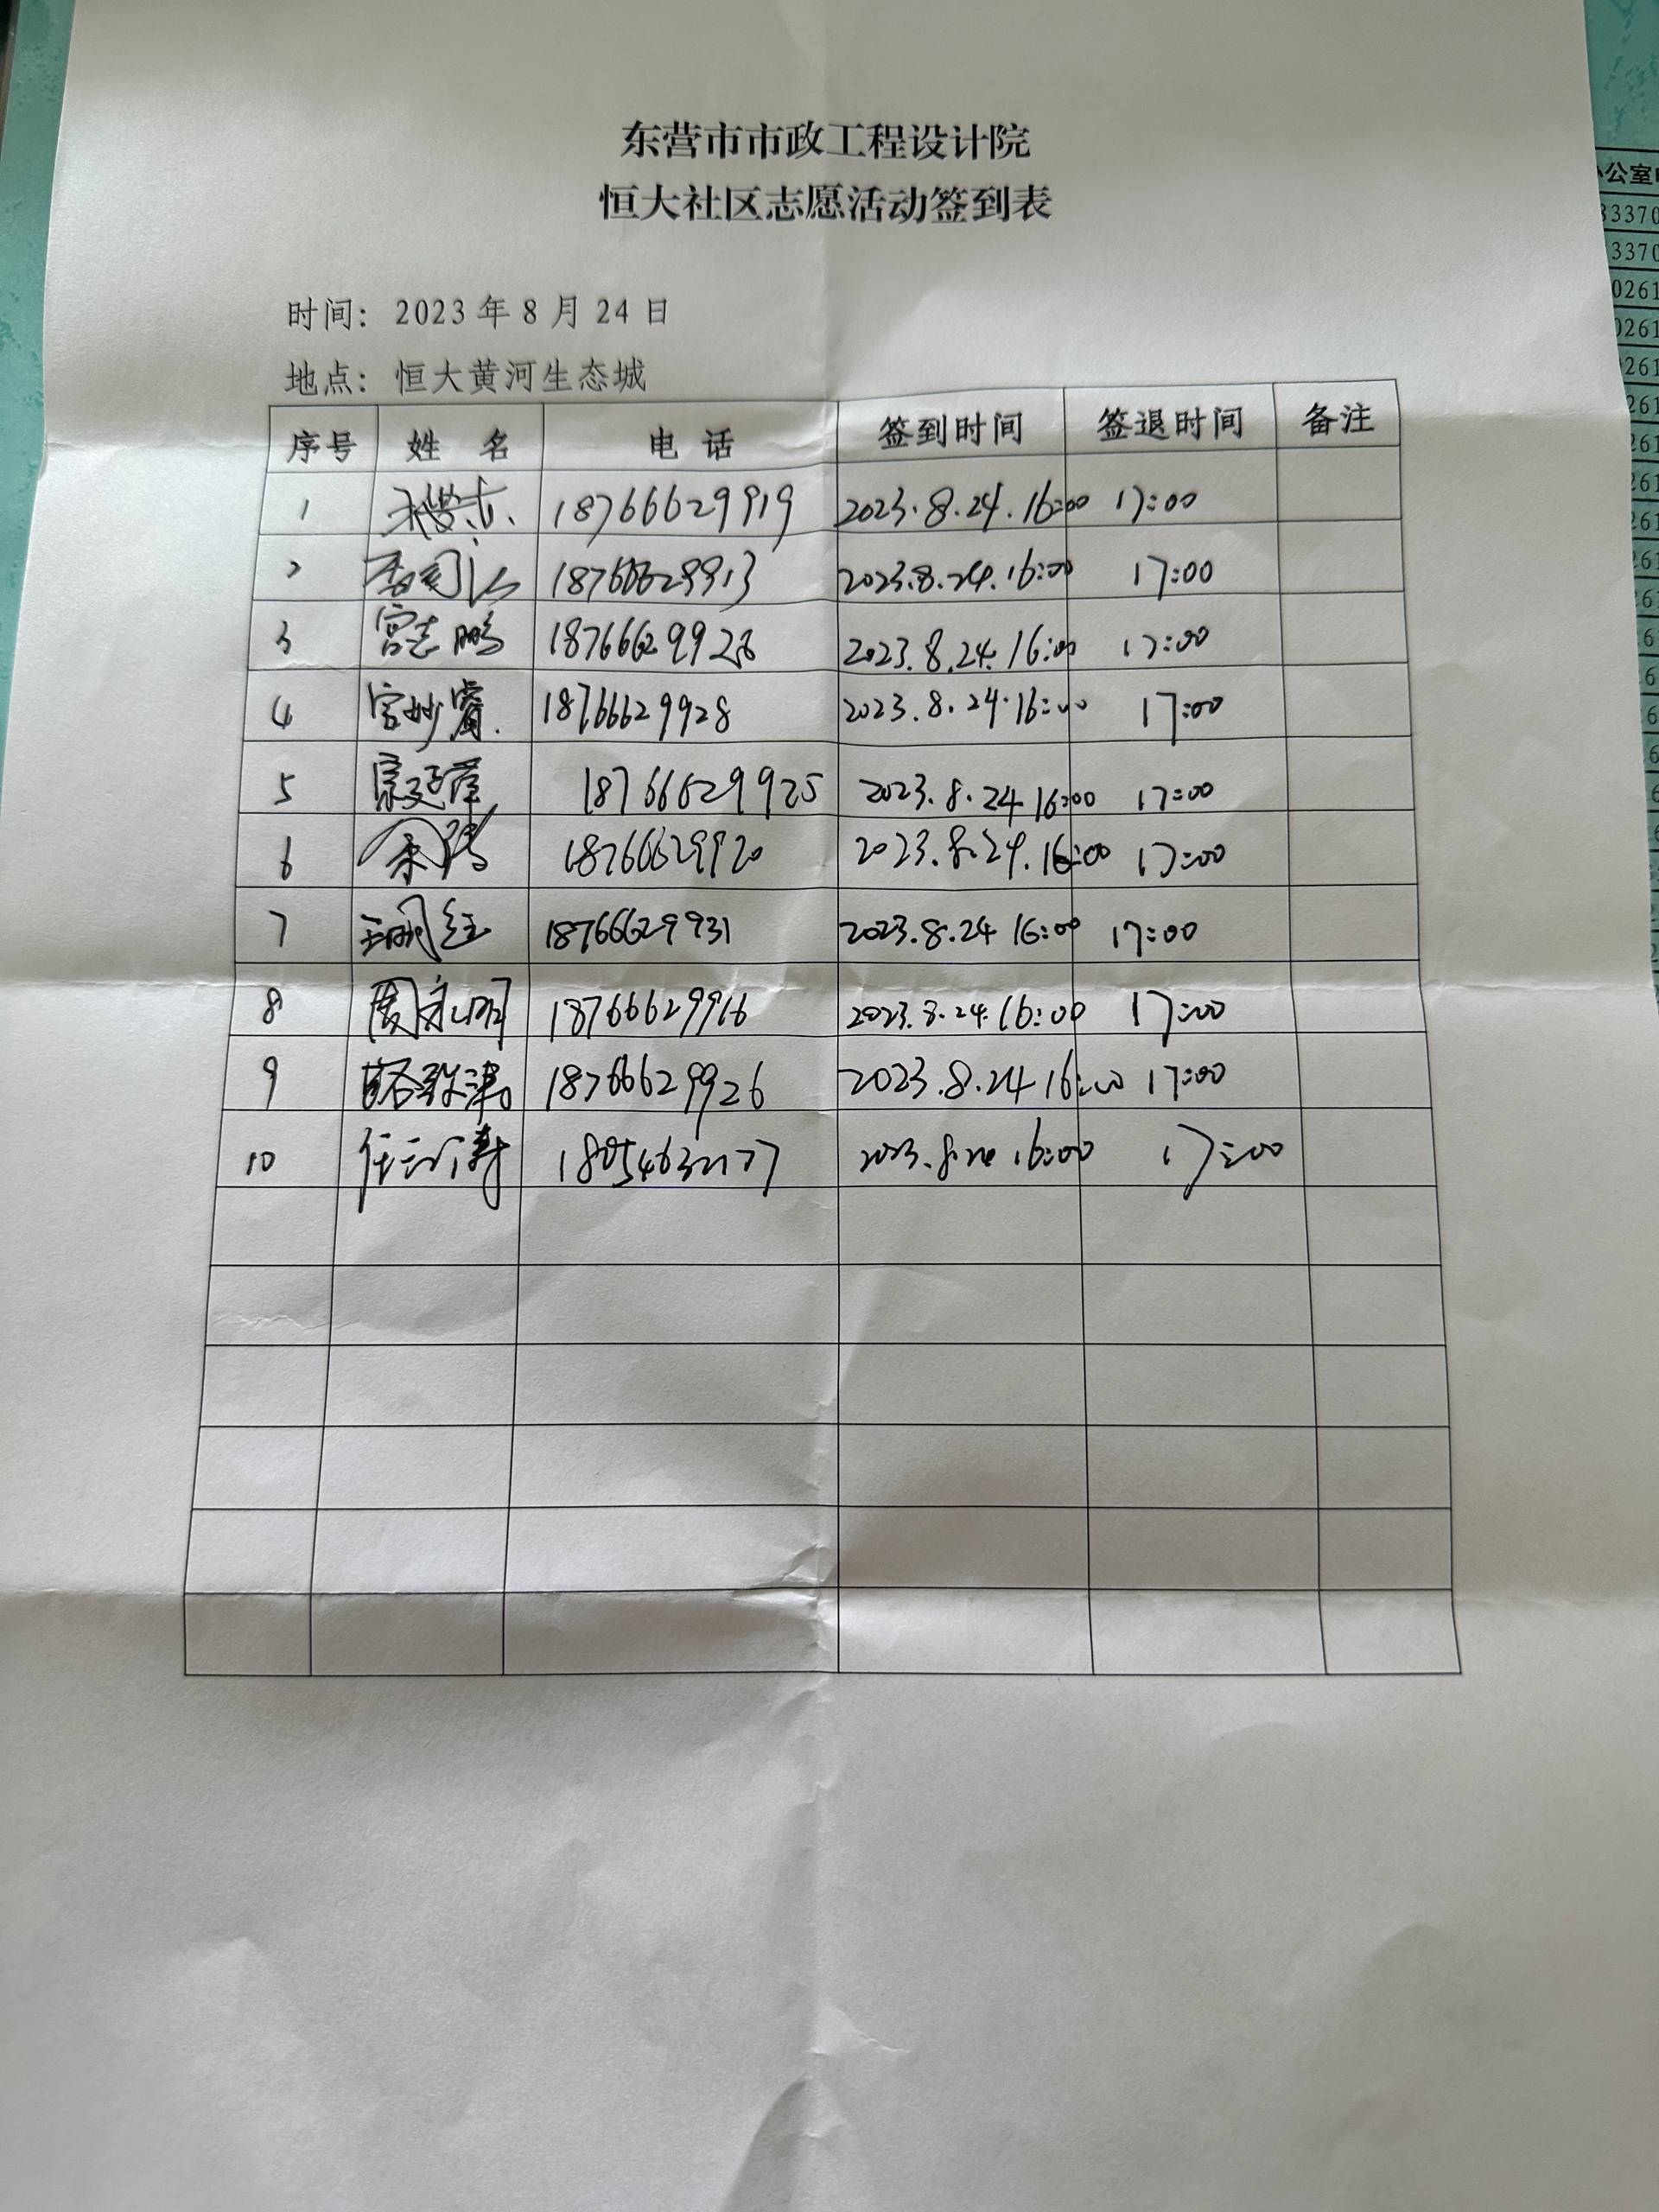 东营市市政工程设计院
恒大社区志愿活动签到表
时间：2023年8月24日
地点：恒大黄河生态城
序号 姓 名 电 话 签到时间 签退时间 备注
1 18766629919 2023.8.24.16:00 17:00
2 18766629913 2023.8.24.16:00 17:00
3 宫志鹏 187666299 2023.8.24.16:00 17:00
4 宫妙 18766629928 2023.8.24.16:00 17:00
5 18766629925 2023.8.24.16:00 17:00
6 18766629920 2023.8.24.16:00 17:00
7 18766629931 2023.8.24 16:00 17:00
8 周永明 18766629916 2023.8.24.16:00 17:00
9 18766629926 2023.8.24 16:00 17:00
10 任 涛 2023.8.24 16:00 17:00
办公室